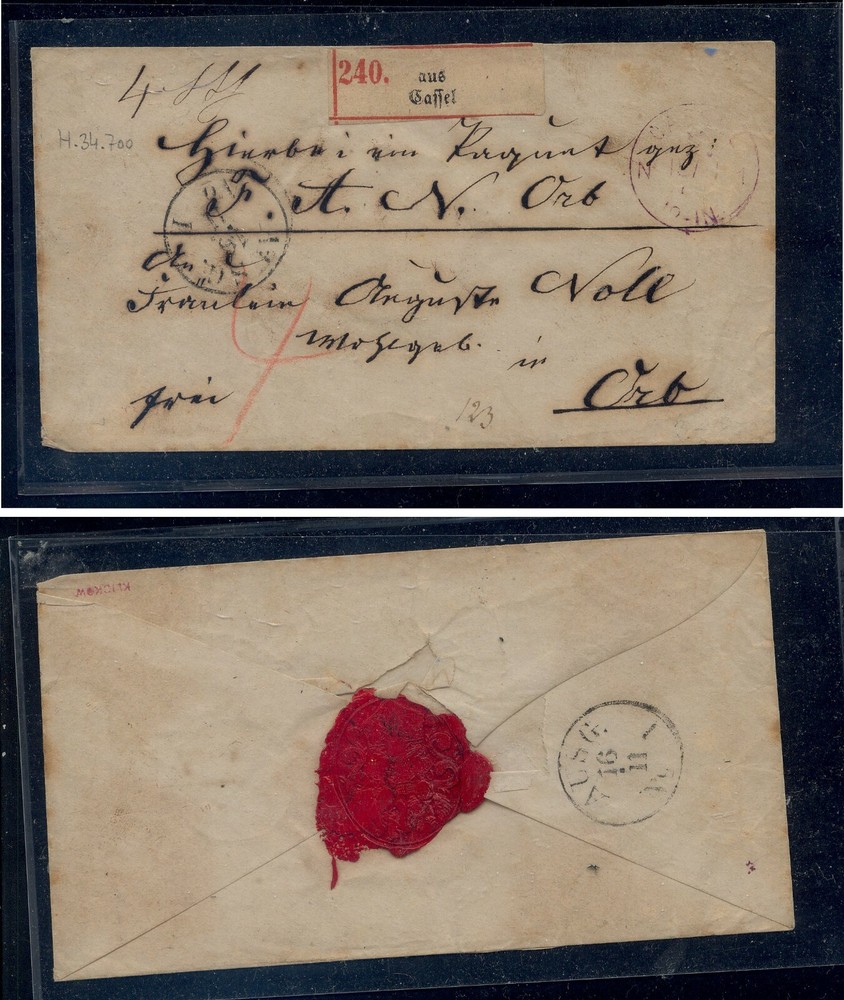 240. aus
Cassel
H.34.700
Hierbei ein Paquet gez:
F. A. N. Orb
An
Fräulein Auguste Noll
Wohlgeb.
in
Orb
frei
123
KLINKOW
AUSG.
16
11